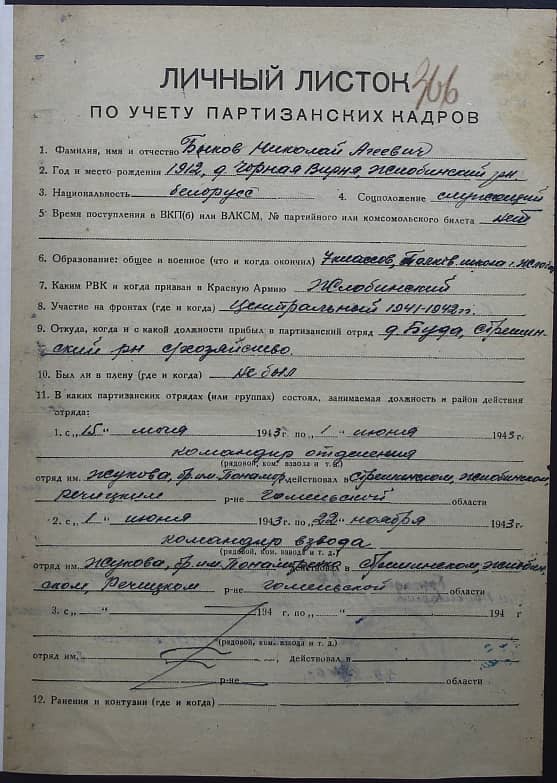 ЛИЧНЫЙ ЛИСТОК 406
ПО УЧЕТУ ПАРТИЗАНСКИХ КАДРОВ
1. Фамилия, имя и отчество Быков Николай Агеевич
2. Год и место рождения 1912, д. Чорная Вирня, Жлобинский рн
3. Национальность белорусс 4. Соцположение служащий
5. Время поступления в ВКП(б) или ВЛКСМ, № партийного или комсомольского билета нет
6. Образование: общее и военное (что и когда окончил) 7 классов, школа г. Жлобин
7. Каким РВК и когда призван в Красную Армию Жлобинский
8. Участие на фронтах (где и когда) Центральный 1941-1942 гг.
9. Откуда, когда и с какой должности прибыл в партизанский отряд д. Буда, Стрешин-
ский рн с/хозяйство.
10. Был ли в плену (где и когда) не был
11. В каких партизанских отрядах (или группах) состоял, занимаемая должность и район действия
отряда:
1. с „15" мая 1943 г. по „1" июня 1943 г.
командир отделения
(рядовой, ком. взвода и т. д.)
отряд им. Жукова, бр. им. Понамар действовал в Стрешинском, Жлобинском,
речицком р-не Гомельской области
2. с „1" июня 1943 г. по „22" ноября 1943 г.
командир взвода
(рядовой, ком. взвода и т. д.)
отряд им. Жукова, бр. им. Понамаренко действовал в Стрешинском, Жлобин-
ском, Речицком р-не Гомельской области
3. с „ " 194 г. по „ " 194 г
(рядовой, ком. взвода и т. д.)
отряд им. , действовал в
р-не области
12. Ранения и контузии (где и когда)